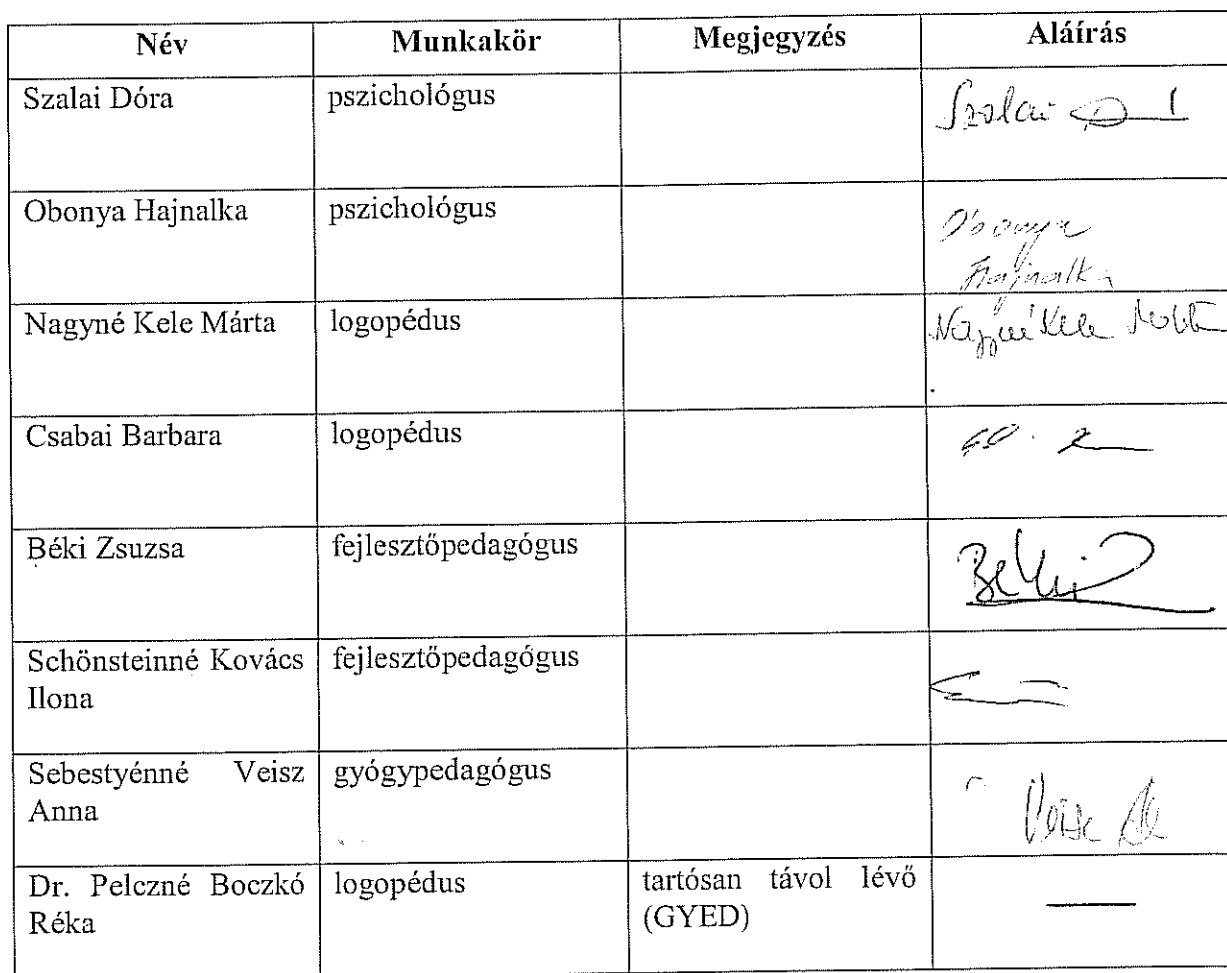 Név Munkakör Megjegyzés Aláírás
Szalai Dóra pszichológus Szalai
Obonya Hajnalka pszichológus Obonya
Hajnalka
Nagyné Kele Márta logopédus Nagyné Kele Márta
Csabai Barbara logopédus
Béki Zsuzsa fejlesztőpedagógus Béki
Schönsteinné Kovács fejlesztőpedagógus
Ilona
Sebestyénné Veisz gyógypedagógus
Anna Veisz
Dr. Pelczné Boczkó logopédus tartósan távol lévő
Réka (GYED)